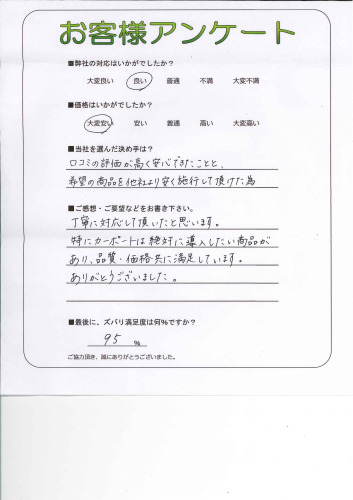 お客様アンケート
■弊社の対応はいかがでしたか?
大変良い 良い 普通 不満 大変不満
■価格はいかがでしたか?
大変安い 安い 普通 高い 大変高い
■当社を選んだ決め手は?
口コミの評価が高く安心できたことと、
希望の商品を他社より安く施行して頂けた為
■ご感想・ご要望などをお書き下さい。
丁寧に対応して頂いたと思います。
特にカーポートは絶対に導入したい商品が
あり、品質・価格共に満足しています。
ありがとうございました。
■最後に、ズバリ満足度は何%ですか?
95 %
ご協力頂き、誠にありがとうございました。